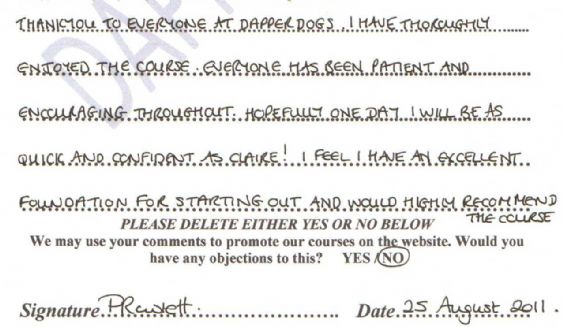 THANKYOU TO EVERYONE AT DAPPER DOGS. I HAVE THOROUGHLY
ENJOYED THE COURSE. EVERYONE HAS BEEN PATIENT AND
ENCOURAGING THROUGHOUT. HOPEFULLY ONE DAY I WILL BE AS
QUICK AND CONFIDENT AS CLAIRE! I FEEL I HAVE AN EXCELLENT
FOUNDATION FOR STARTING OUT AND WOULD HIGHLY RECOMMEND
THE COURSE
PLEASE DELETE EITHER YES OR NO BELOW
We may use your comments to promote our courses on the website. Would you
have any objections to this? YES / NO
Signature
Date 25 August 2011.